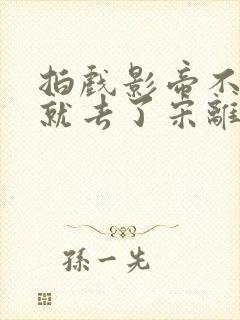 拍戲影帝不
就去了宋離
孫一先